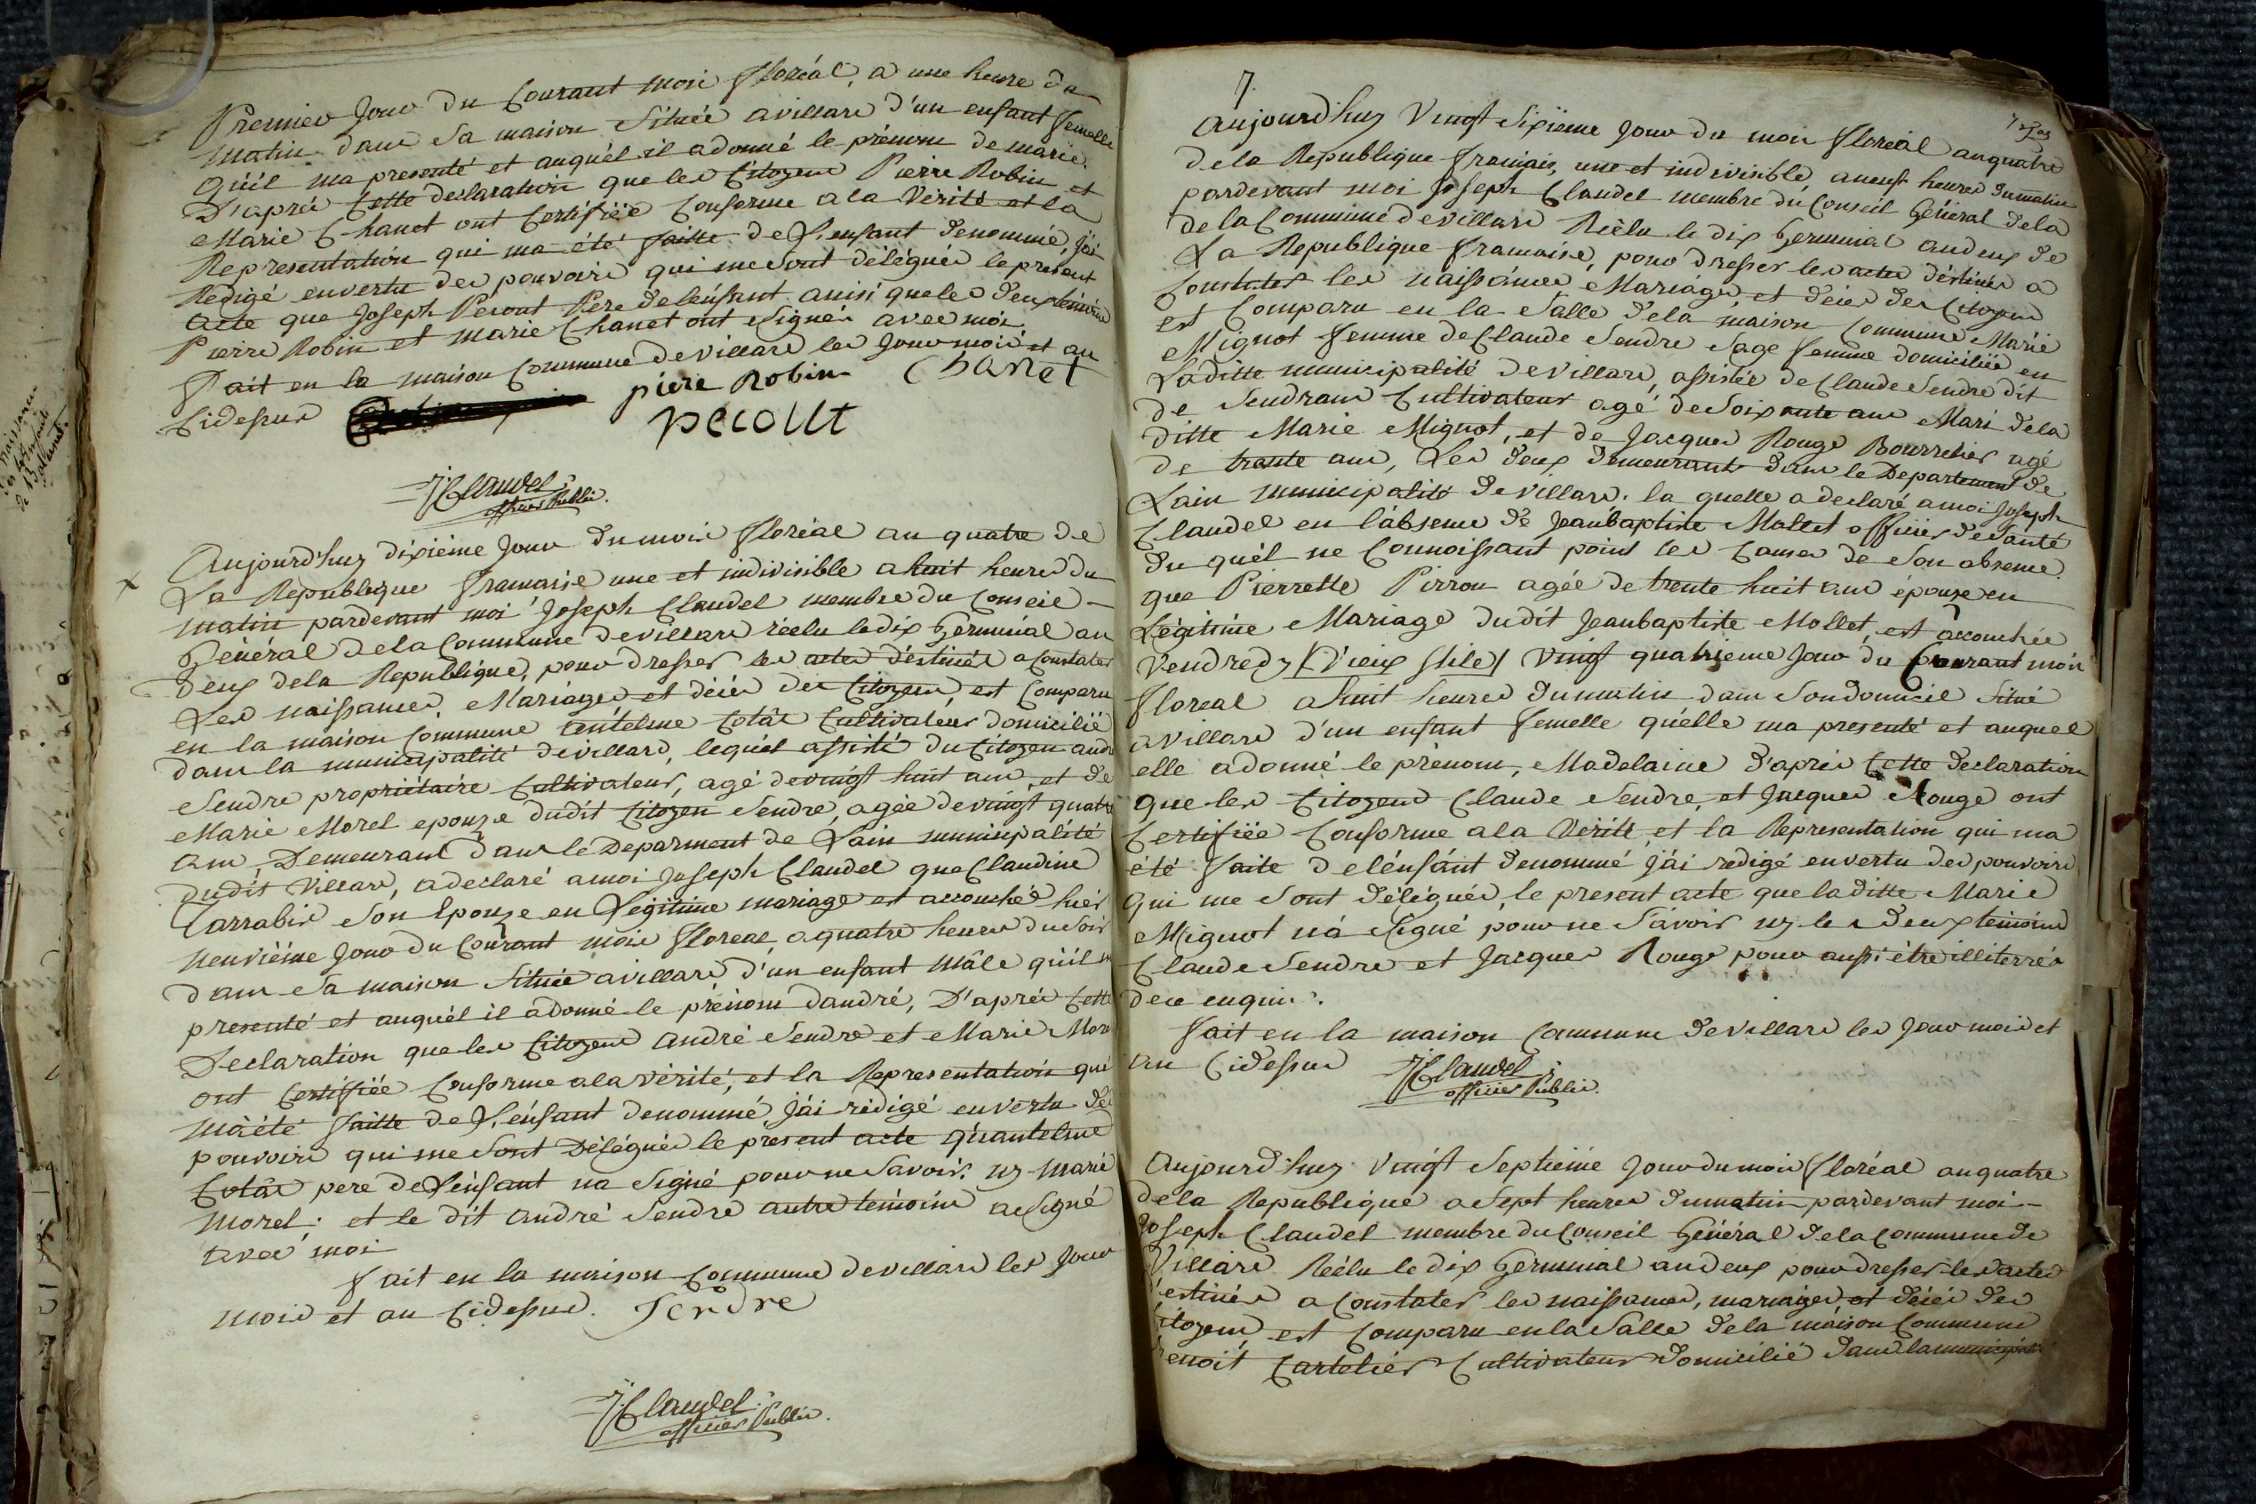 Premier Jour du Courant mois floréal, a une heure du
matin dans Sa maison Située avillars d'un enfant femelle
qu'il ma presenté et auquél il adonné le prénom de marie.
D'aprés Cette declaration que les Citoyens Pierre Robin et
Marie Chanet ont Certifiée Conforme ala Vérité et la
Representation qui ma été faitte de L'enfant dénommé, j'ai
Rédigé envertu des pouvoirs qui me Sont délégués le present
acte que Joseph Pécout Pere delénfant ainsi queles deux témoins
Pierre Robin et Marie Chanet ont Signés avec moi.
Fait en la maison Commune devillars les Jour mois et an
Cidessus
piere Robin Chanet
pecout
JClaudel
officier Public.
Aujourd'huy dixiéme Jour du mois floréal an quatre de
La Republique framaise une et indivisible a huit heures du
matin pardevant moi Joseph Claudel membre du Conseil
Général dela Commune devillars réelu ledix Gérminal an
deux dela Republique, pour dresser les actes déstinés a Constater
Les naissances, Mariages et décés des Citoyens, est Comparu
en la maison Commune antelme Cotât Cultivateur domicilié
dans la municipalité devillars, lequél assisté du Citoyen andré
Sendre propriétaire Cultivateur, agé devingt huit ans, et de
Marie Morel epouze dudit Citoyen Sendre, agée devingt quatre
ans Demeurant dans le Deparment de Lain municipalité
dudit Villars, adeclaré amoi Joseph Claudel que Claudine
Carrabis Son Epouze en Légitime mariage est accouchée hiér
neuviéme Jour du Courant mois floreal, aquatre heures du Soir
dans Sa maison Située avillars d'un enfant Mâle qu'il m
presenté et auquél il adonné le prénom dandré, D'aprés Cette
Declaration que les Citoyens andré Sendre et Marie More
ont Certifiée Conforme ala vérité, et la Representation qui
ma été faitte de L'énfant denommé j'ai rédigé en vertu des
pouvoirs qui me Sont Délégués le présent acte qu'antelme
Cotât pere de L'énfant na Signé pour ne Savoir. ny Marie
Morel; et le dit andré Sendre autre témoins aSigné
avec moi
fait en la maison Commune devillars les Jour
mois et an Cidessus. Sendre
JClaudel
officier Public.
7.
Aujourd'huy Vingt Sixiéme Jour du mois floréal an quatre
de la Republique framais, une et indivisible, aneuf heures dumatin
pardevant moi Joseph Claudel membre du Conseil Général dela
de la Commune devillars Réélu le dix Germinal an deux de
La Republique framaise, pour dresser les actes déstinés a
Constater les naissances Mariages, et décés des Citoyens
est Comparu en la Salle dela maison Commune Marie
Mignot femme deClaude Sendre Sage femme domiciliée en
Laditte municipalité de Villars, assistée de Claude Sendre dit
de Sendrans Cultivateur agé deSoixante ans Mari dela
ditte Marie Mignot, et de Jacques Rouge Bourrelier agé
de trante ans, Les deux demeurants dans le Departement de
Lain municipalité devillars. la quelle a declaré amoi Joseph
Claudel en l'absence de Jeanbaptiste Mollet officier desanté
du quél ne Connoissant point les Causes de Son absence.
que Pierrette Pirrou agée de trente huit ans épouze en
Légitime Mariage dudit Jeanbaptiste Mollet, est accouchée
Vendredy (Vieux Stile) Vingt quatrieme Jour du Courant mois
floreal ahuit heures dumatin dans Sondomicile Situé
avillars d'un enfant femelle quélle ma presenté et auquel
elle adonné le prénom, Madelaine D'aprés Cette declaration
que les Citoyens Claude Sendre, et Jacques Rouge ont
Certifiée Conforme ala Vérité, et la Representation qui ma
été faite de lénfánt denommé j'ai redigé envertu des pouvoirs
qui me Sont délégués, le present acte que laditte Marie
Mignot n'a Signé pour ne Savoir ny les deux temoins
Claude Sendre et Jacques Rouge pour aussi être illiterrés
de ce enquis.
Fait en la maison Commune devillars les Jour mois et
an Cidessus JClaudel
officier Public.
Aujourd'huy Vingt Septiéme Jour du mois floréal an quatre
dela Republique a Sept heures dumatin pardevant moi
Joseph Claudel membre du Conseil Général dela Commune de
Villars Réélu le dix Germinal an deux pour dresser les actes
déstinés a Constater les naissances, mariages, et décés des
Citoyens est Comparu enla Salle dela maison Commune
Benoit Cartelier Cultivateur domicilié dans lamunicipalité